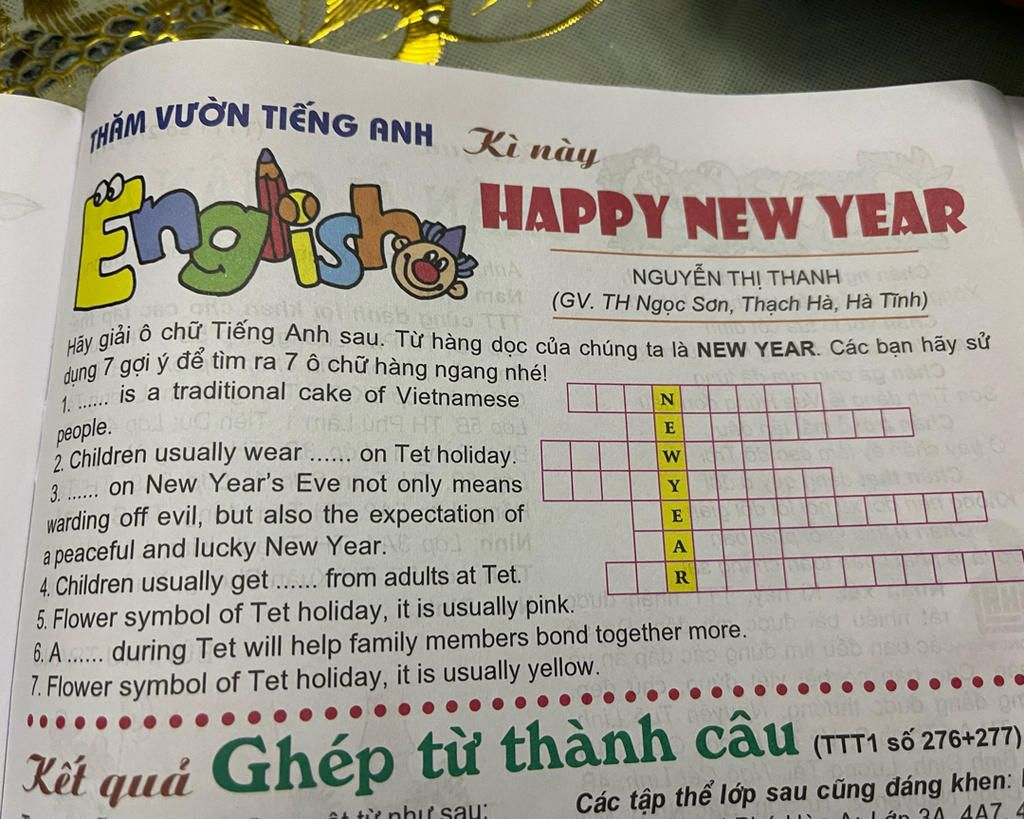 THĂM VƯỜN TIẾNG ANH
Kì này
English
HAPPY NEW YEAR
NGUYỄN THỊ THANH
(GV. TH Ngọc Sơn, Thạch Hà, Hà Tĩnh)
Hãy giải ô chữ Tiếng Anh sau. Từ hàng dọc của chúng ta là NEW YEAR. Các bạn hãy sử
dụng 7 gợi ý để tìm ra 7 ô chữ hàng ngang nhé!
1. ...... is a traditional cake of Vietnamese
people.
2. Children usually wear ...... on Tet holiday.
3. ...... on New Year's Eve not only means
warding off evil, but also the expectation of
a peaceful and lucky New Year.
4. Children usually get ...... from adults at Tet.
5. Flower symbol of Tet holiday, it is usually pink.
6. A ...... during Tet will help family members bond together more.
7. Flower symbol of Tet holiday, it is usually yellow.
N
E
W
Y
E
A
R
Kết quả Ghép từ thành câu (TTT1 số 276+277)
Các tập thể lớp sau cũng đáng khen:
từ như sau: